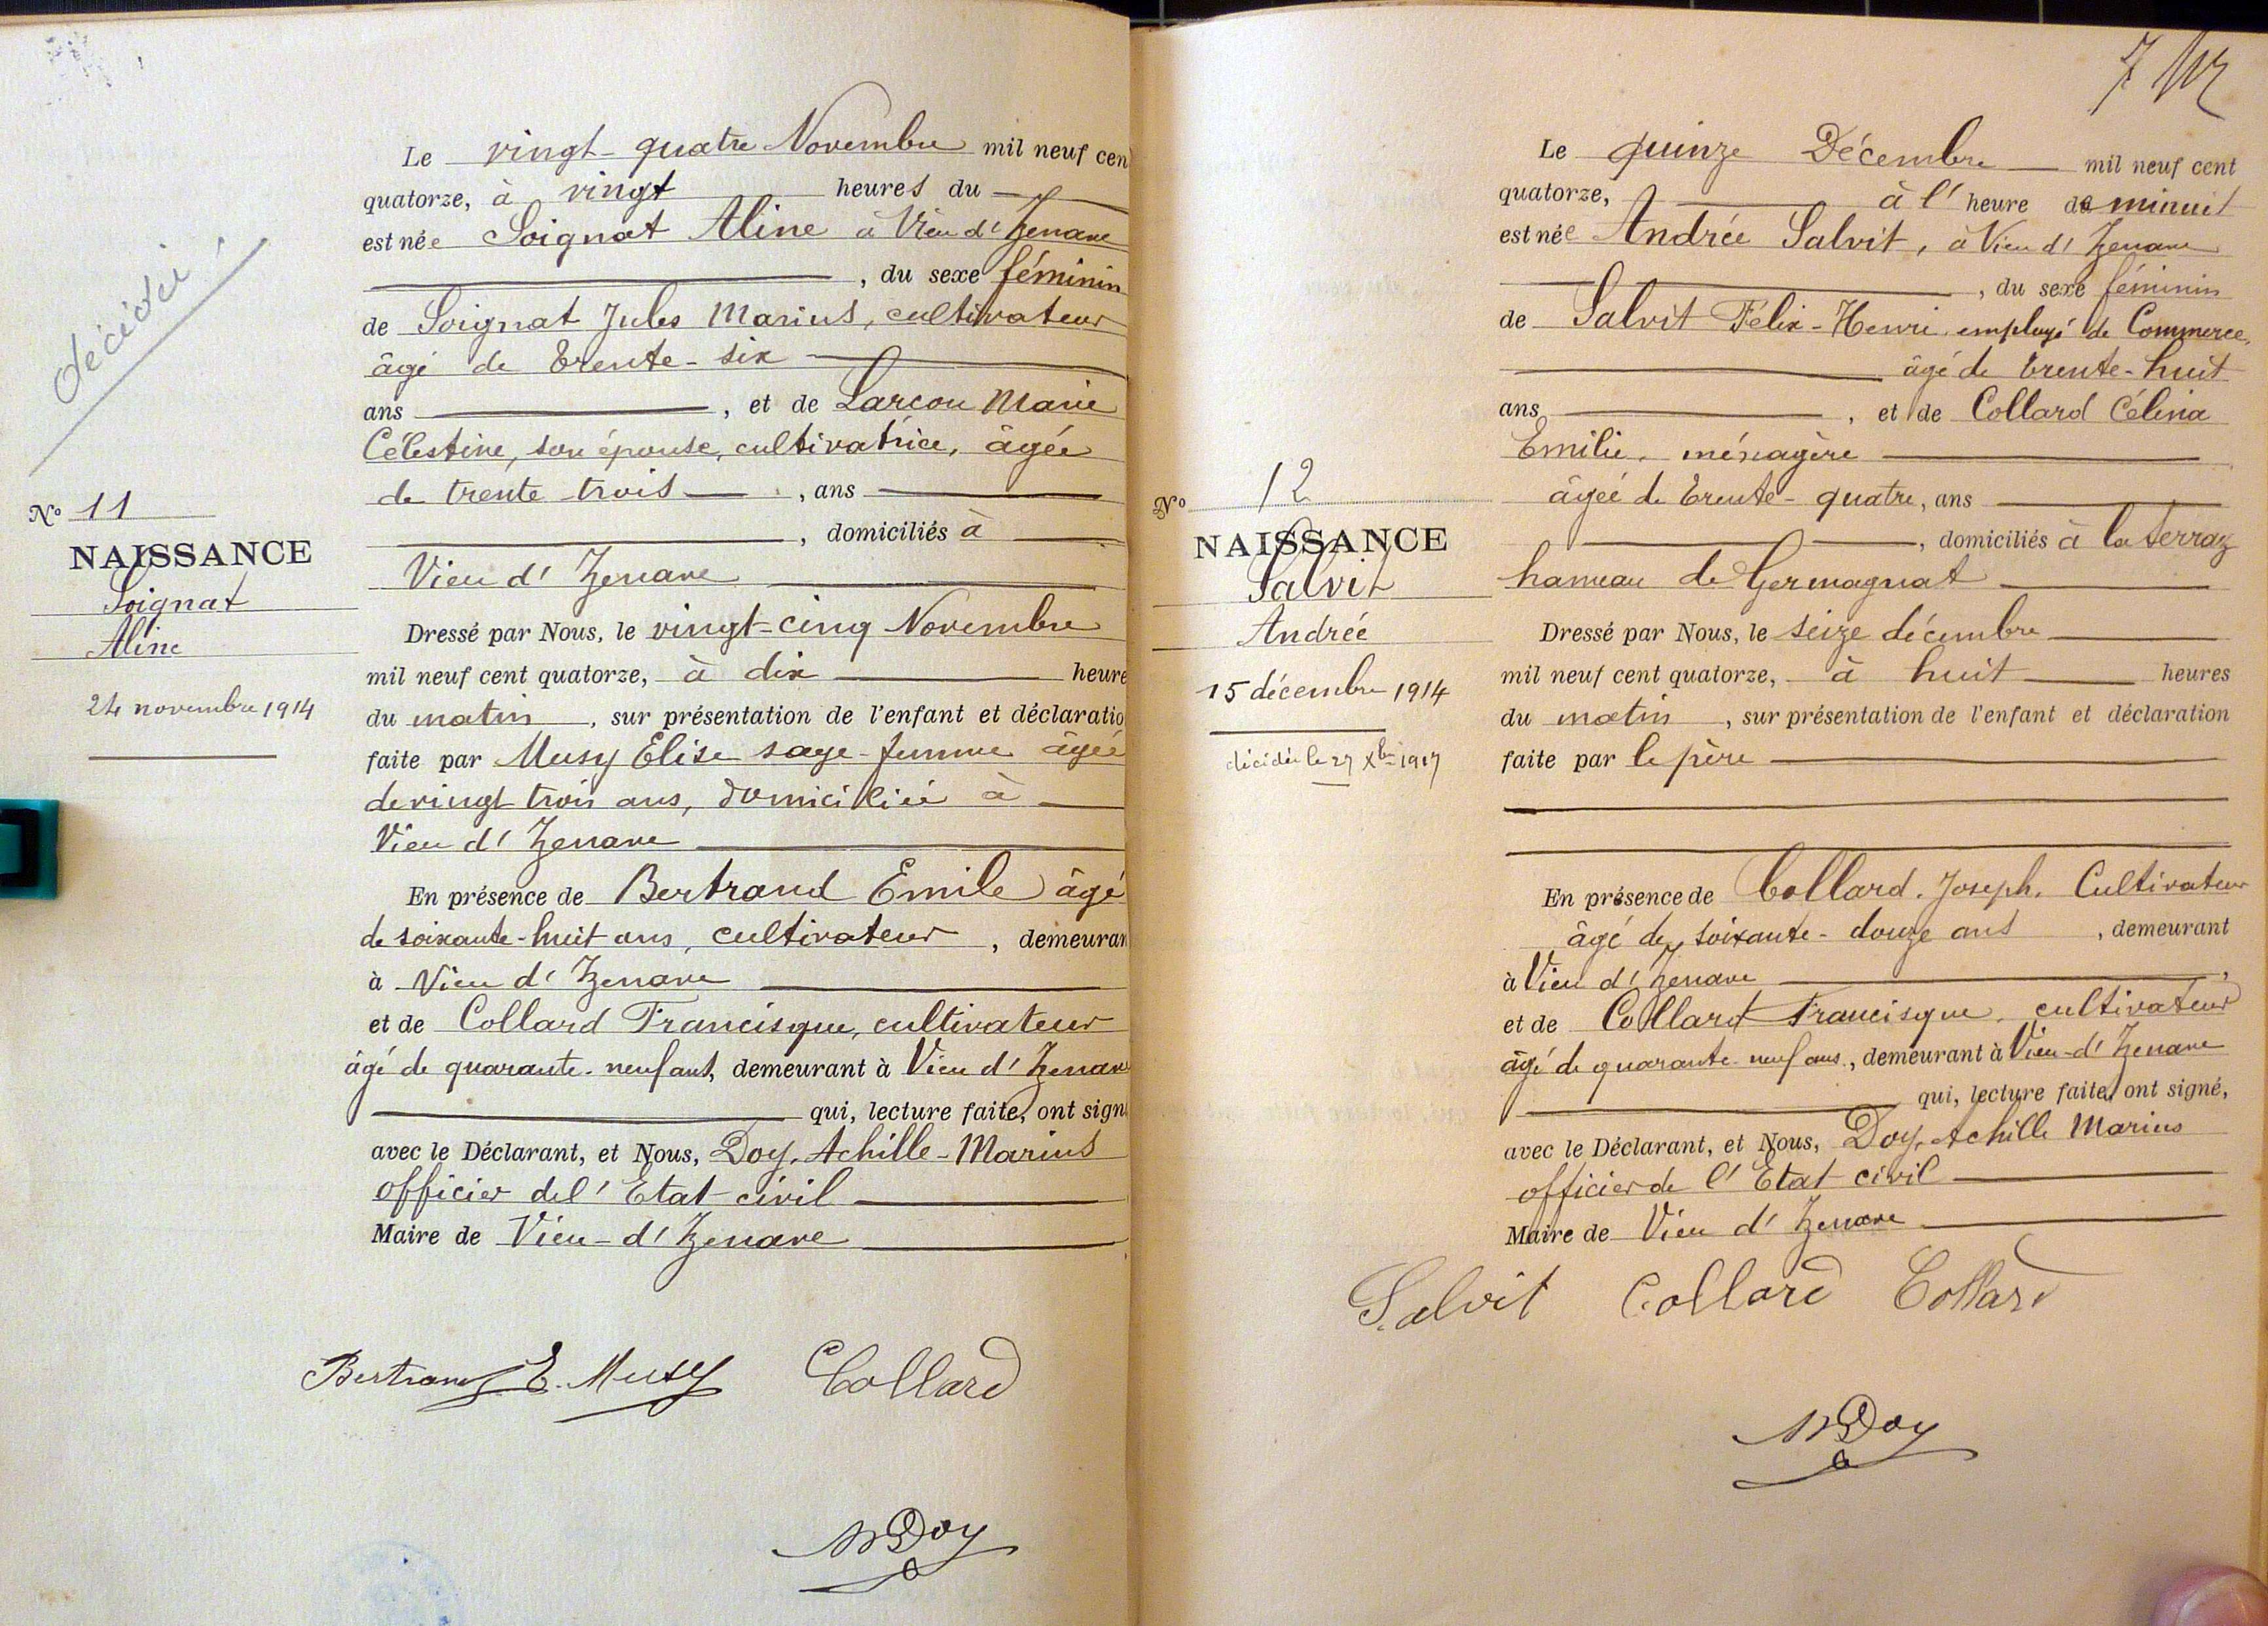 décédée
Le vingt-quatre Novembre mil neuf cen
quatorze, à vingt heures du
est née Soignat Aline à Vieu d'Izenave
, du sexe féminin
de Soignat Jules Marius, cultivateur
âgé de trente-six
ans , et de Larçon Marie
Célestine, son épouse, cultivatrice, âgée
de trente trois , ans
, domiciliés à
Vieu d'Izenave
Nº 11
NAISSANCE
Soignat
Aline
24 novembre 1914
Dressé par Nous, le vingt-cinq Novembre
mil neuf cent quatorze, à dix heure
du matin , sur présentation de l'enfant et déclaratio
faite par Musy Elise sage-femme âgée
de vingt trois ans, domiciliée à
Vieu d'Izenave
En présence de Bertrand Emile âgé
de soixante-huit ans, cultivateur , demeuran
à Vieu d'Izenave
et de Collard Francisque, cultivateur
âgé de quarante-neuf ans, demeurant à Vieu d'Izenave
qui, lecture faite, ont sign
avec le Déclarant, et Nous, Doy, Achille-Marius
officier de l'Etat civil
Maire de Vieu-d'Izenave
Bertrand E. Musy Collard
Doy
7
Le quinze Décembre mil neuf cent
quatorze, à l'heure de minuit
est née Andrée Salvit, à Vieu d'Izenave
, du sexe féminin
de Salvit Felix-Henri employé de Commerce,
âgé de trente-huit
ans , et de Collard Célina
Emilie, ménagère
âgée de trente-quatre, ans
, domiciliés à la terraz
hameau de Germagnat
Nº 12
NAISSANCE
Salvit
Andrée
15 décembre 1914
décédée le 27 Xbre 1917
Dressé par Nous, le seize décembre
mil neuf cent quatorze, à huit heures
du matin , sur présentation de l'enfant et déclaration
faite par le père
En présence de Collard Joseph, Cultivateur
âgé de soixante-douze ans , demeurant
à Vieu d'Izenave
et de Collard Francisque, cultivateur
âgé de quarante-neuf ans, demeurant à Vieu-d'Izenave
qui, lecture faite, ont signé,
avec le Déclarant, et Nous, Doy, Achille Marius
officier de l'Etat civil
Maire de Vieu d'Izenave
Salvit Collard Collard
Doy